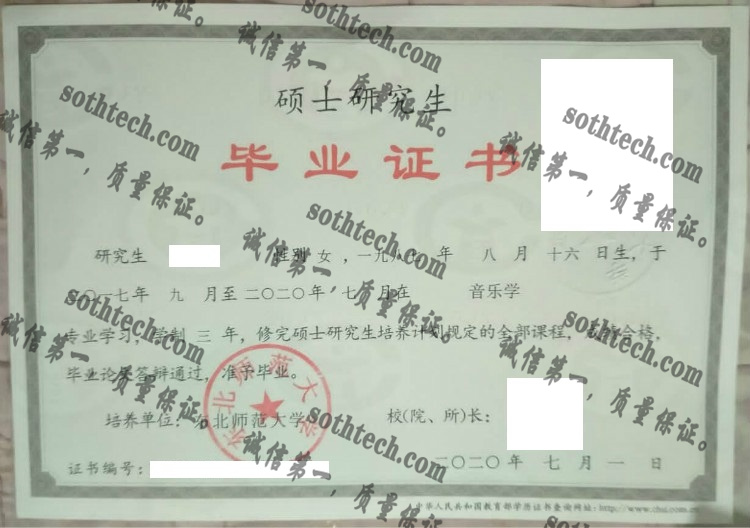 硕士研究生
毕业证书
研究生 性别 女 ，一九八七 年 八 月 十六 日生，于
二〇一七年 九 月至二〇二〇年 七 月在 音乐学
专业学习，学制 三 年，修完硕士研究生培养计划规定的全部课程，成绩合格，
毕业论文答辩通过，准予毕业。
培养单位：东北师范大学
校(院、所)长：
证书编号：
二〇二〇年 七 月 一 日
中华人民共和国教育部学历证书查询网址：http://www.chsi.com.cn
东北师范大学
sothtech.com
诚信第一，质量保证。
sothtech.com
诚信第一，质量保证。
sothtech.com
诚信第一，质量保证。
sothtech.com
诚信第一，质量保证。
sothtech.com
诚信第一，质量保证。
sothtech.com
诚信第一，质量保证。
sothtech.com
诚信第一，质量保证。